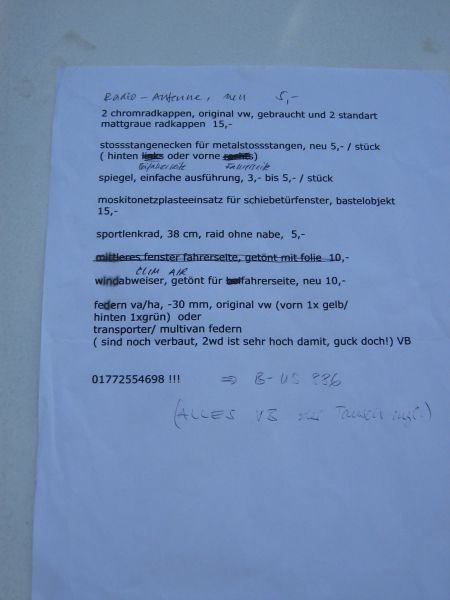 Radio-Antenne, neu 5,-
2 chromradkappen, original vw, gebraucht und 2 standart
mattgraue radkappen 15,-
stossstangenecken für metalstossstangen, neu 5,- / stück
( hinten links oder vorne rechts)
Beifahrerseite Fahrerseite
spiegel, einfache ausführung, 3,- bis 5,- / stück
moskitonetzplasteeinsatz für schiebetürfenster, bastelobjekt
15,-
sportlenkrad, 38 cm, raid ohne nabe, 5,-
mittleres fenster fahrerseite, getönt mit folie 10,-
CLIM AIR
windabweiser, getönt für beifahrerseite, neu 10,-
federn va/ha, -30 mm, original vw (vorn 1x gelb/
hinten 1xgrün) oder
transporter/ multivan federn
( sind noch verbaut, 2wd ist sehr hoch damit, guck doch!) VB
01772554698 !!! ⇒ B-US 886
(ALLES VB Tausch